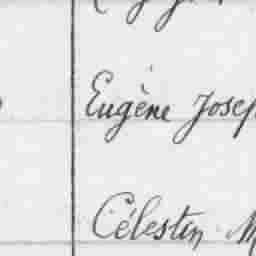 Eugène Josep
Célestin M